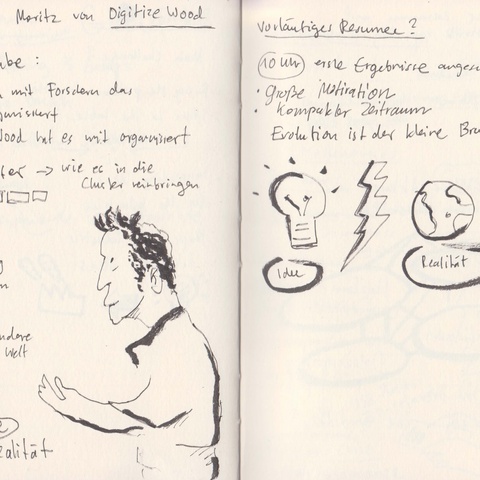 Moritz von Digitize Wood
abe :
mit Forschern das
organisiert
Wood hat es mit organisiert
→ wie es in die
Cluster reinbringen
andere
Welt
Realität
vorläufiges Resumee?
10 Uhr erste Ergebnisse angesc
• Große Motivation
• Kompakter Zeitraum
Evolution ist der kleine Bru
Idee
Realität